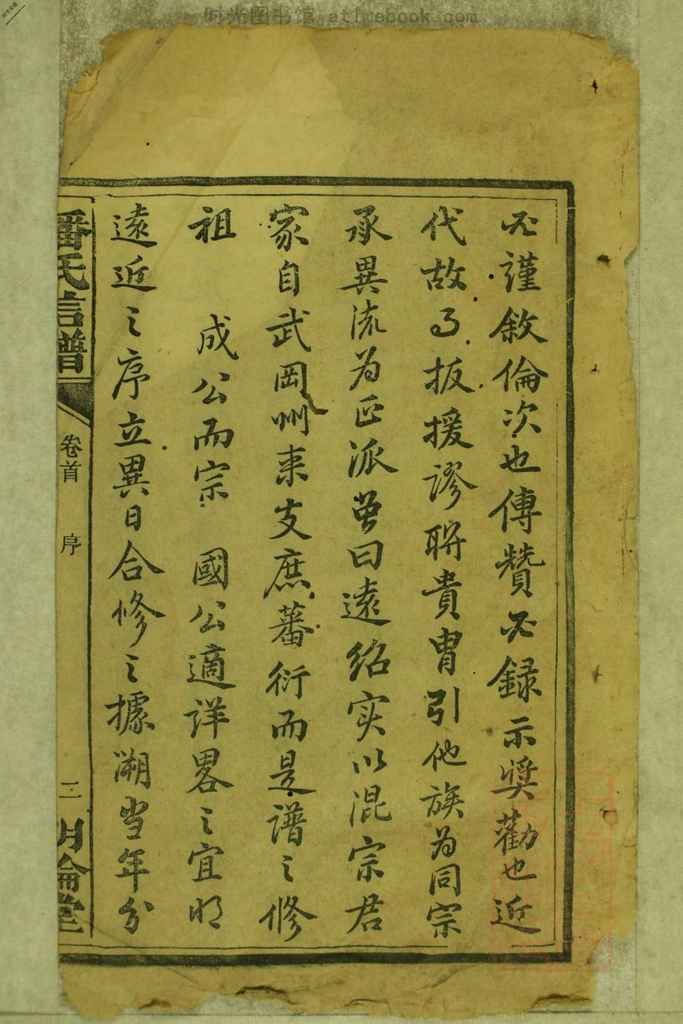 时光图书馆 atimebook.com
必謹敘倫次也傳贊必錄示奬勸也近
代故习扳援謬聨貴胄引他族為同宗
承異流為正派曾曰遠紹实以混宗君
家自武岡州来支庶蕃衍而是譜之修
祖 成公而宗 國公適詳畧之宜明
遠近之序立異日合修之據溯当年分
潘氏信譜
卷首 序
二 明倫堂